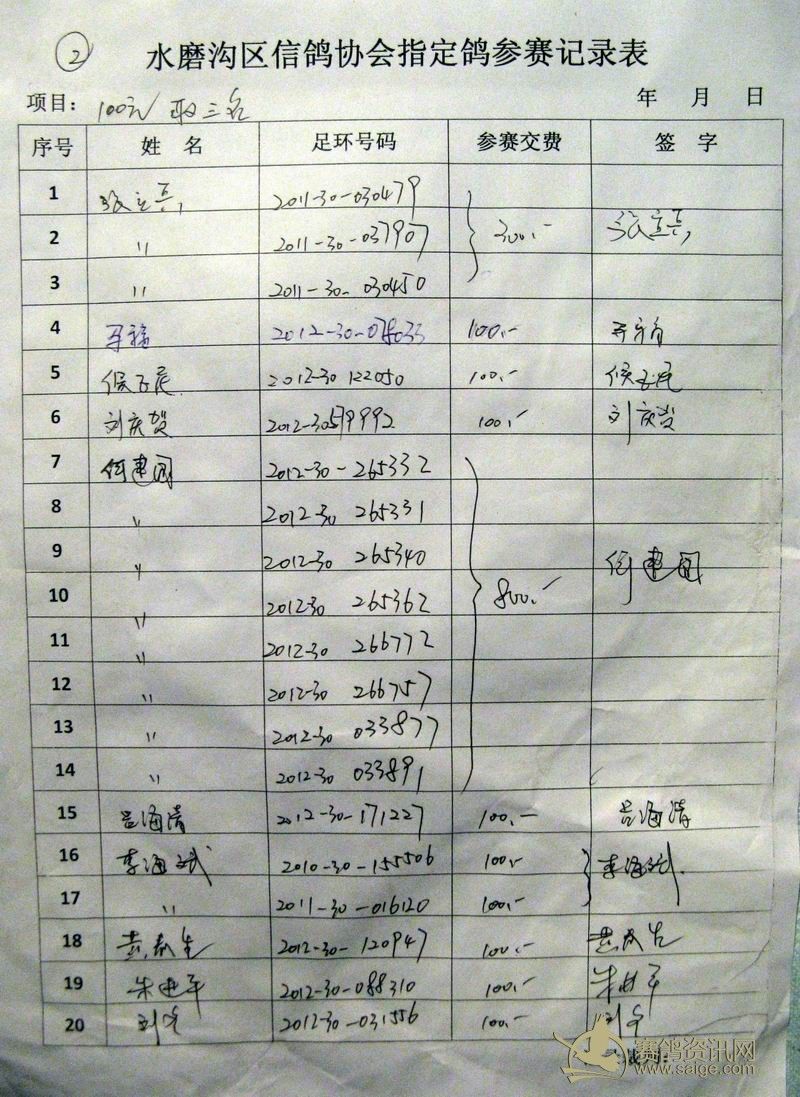 2
水磨沟区信鸽协会指定鸽参赛记录表
项目: 100元 取三名 年 月 日
序号 姓 名 足环号码 参赛交费 签 字
1 2011-30-030479
2 〃 2011-30-037907 300.-
3 〃 2011-30-030450
4 2012-30- 100.-
5 2012-30 122050 100.-
6 刘庆贺 2012-30 519992 100.- 刘庆贺
7 何建国 2012-30-265332
8 〃 2012-30 265331
9 〃 2012-30 265340 何建国
10 〃 2012-30 265362 800.-
11 〃 2012-30 266772
12 〃 2012-30 266757
13 〃 2012-30 033877
14 〃 2012-30 033891
15 吕海清 2012-30-171227 100.- 吕海清
16 李海斌 2010-30-155506 100.- 李海斌
17 〃 2011-30-016120 100.-
18 2012-30-120947 100.-
19 朱建平 2012-30-088310 100.- 朱建平
20 2012-30-031556 100.-
裁判:
赛鸽资讯网
www.saige.com